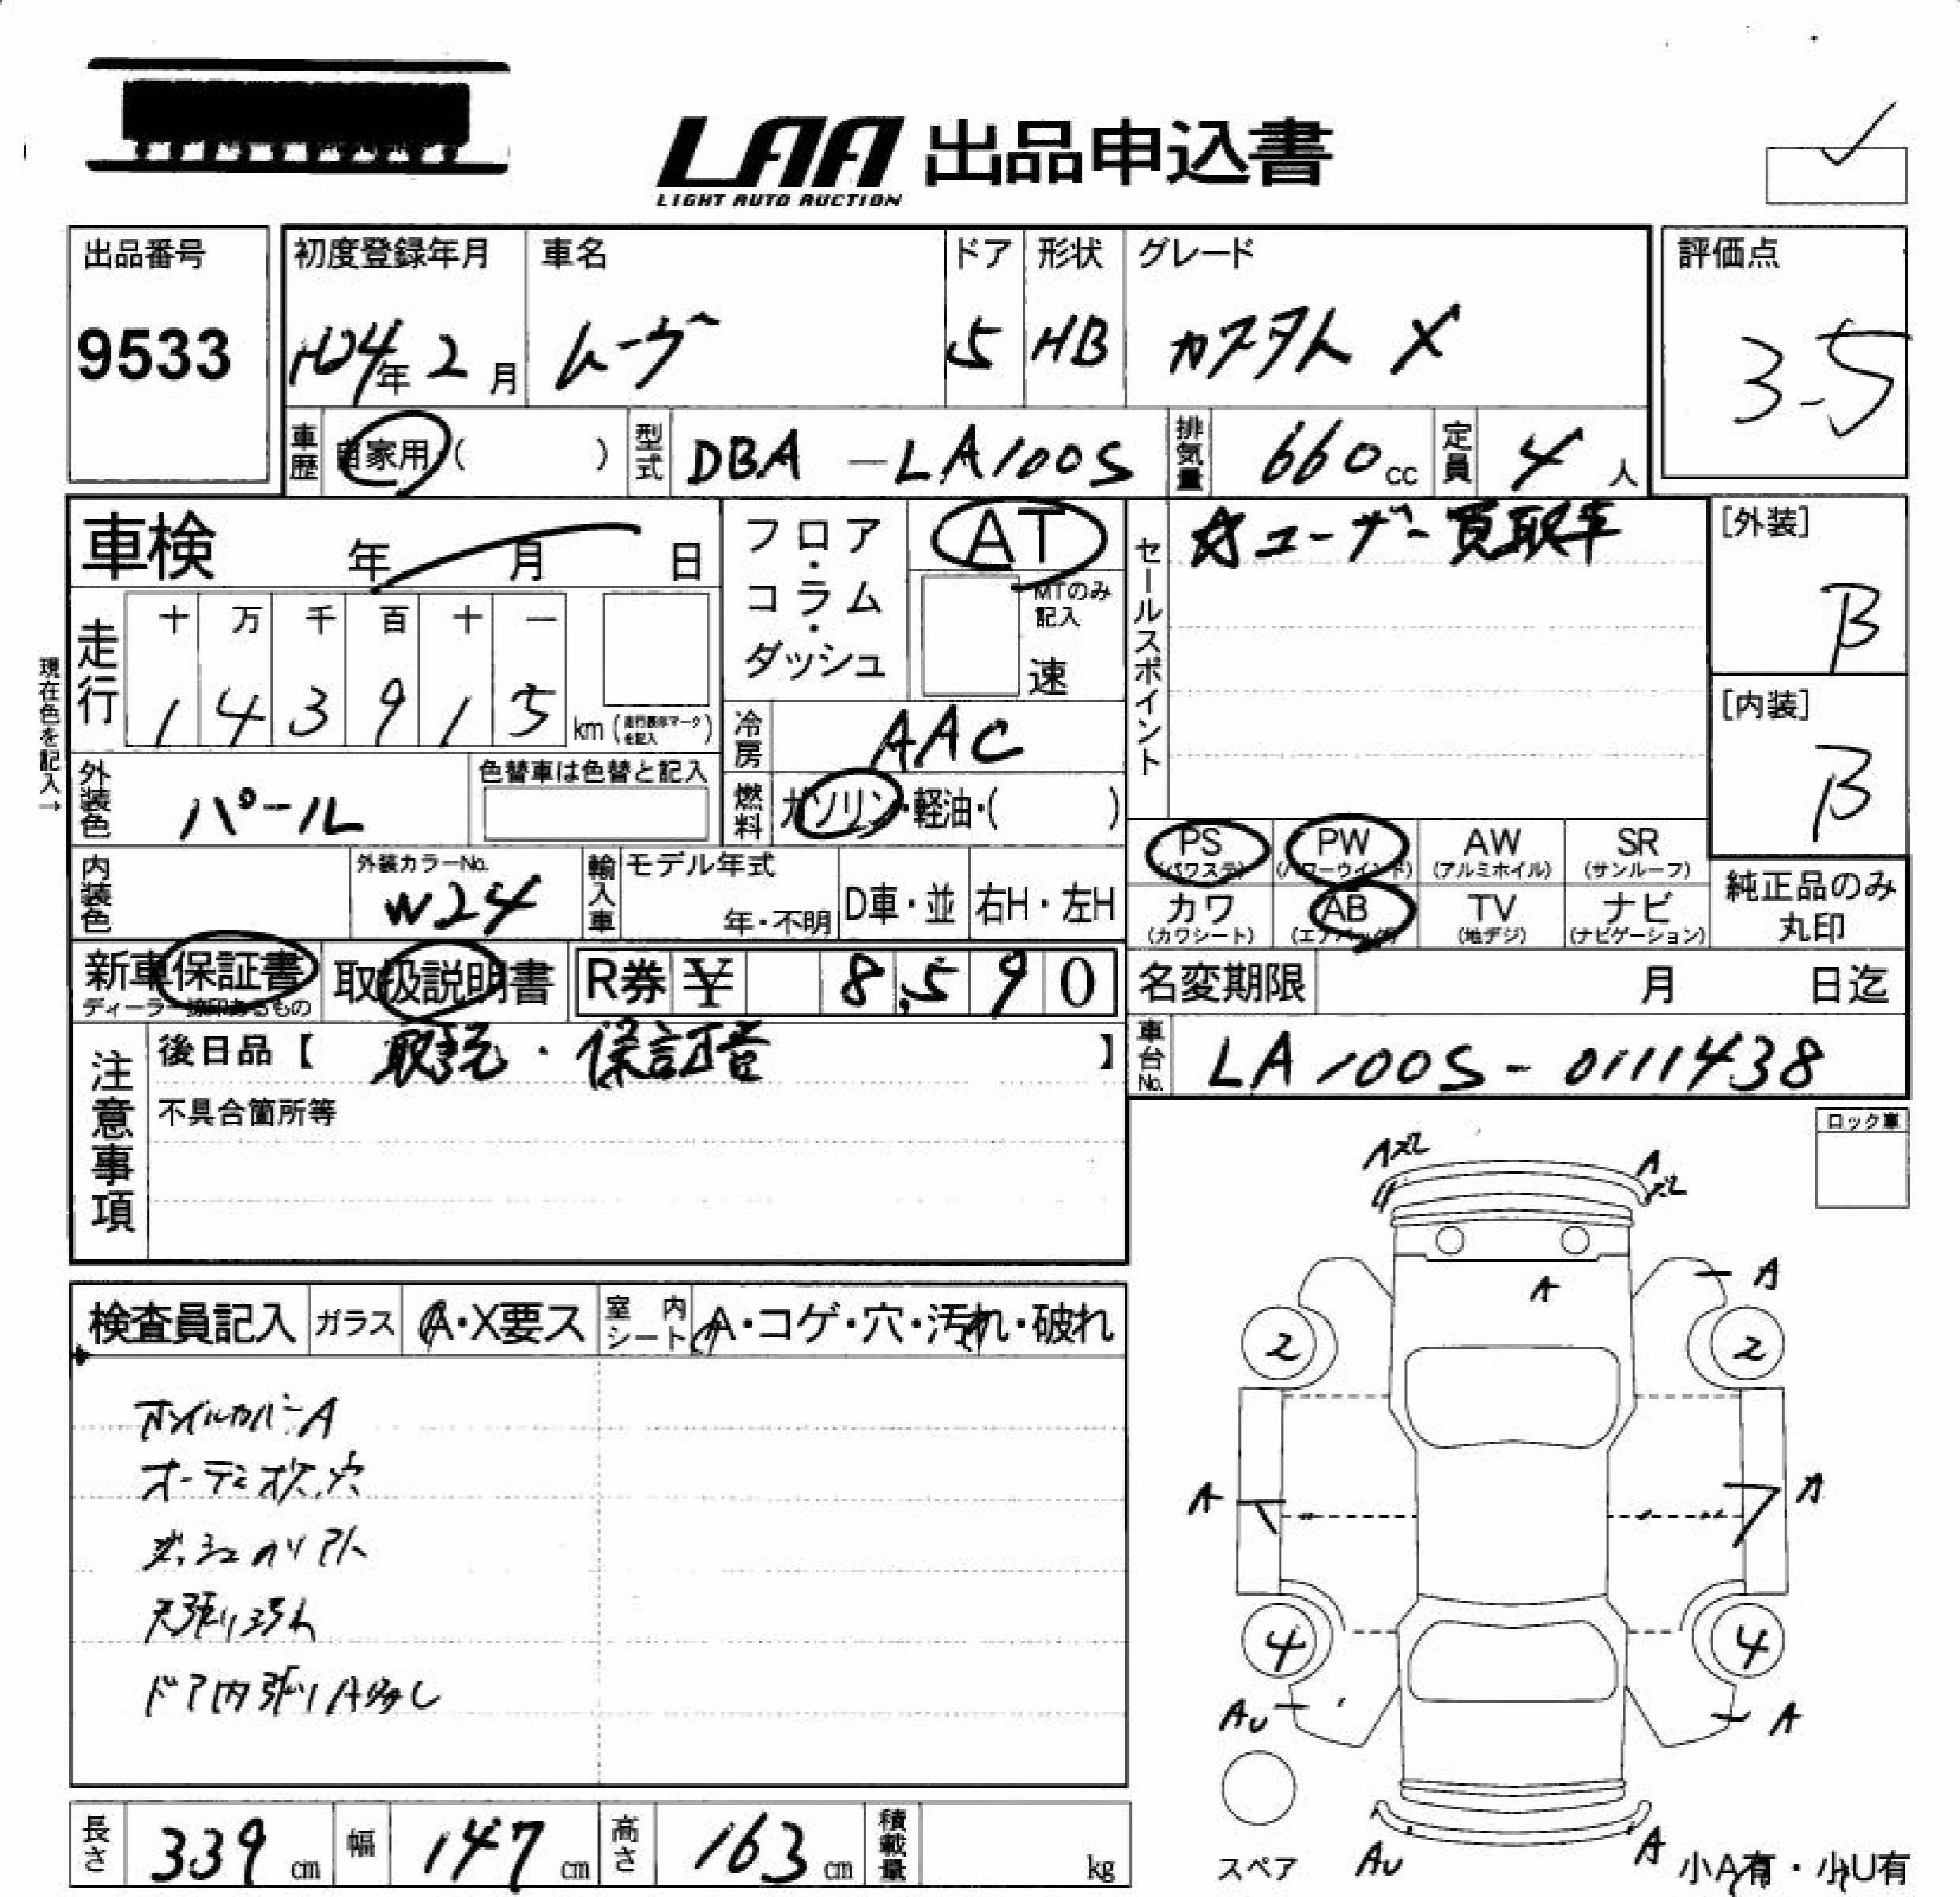 LAA 出品申込書
LIGHT AUTO AUCTION
出品番号
9533
初度登録年月
H24年 2月
車名
ムーヴ
ドア
5
形状
HB
グレード
カスタム X
評価点
3.5
車歴
自家用 ( )
型式
DBA-LA100S
排気量
660 cc
定員
4 人
車検 年 月 日
走行
十 万 千 百 十 一
1 4 3 9 1 5 km (走行表示マークを記入)
現在色を記入→
フロア・コラム・ダッシュ
AT
MTのみ記入
速
冷房
AAC
燃料
ガソリン・軽油・( )
外装色
パール
色替車は色替と記入
内装色
外装カラーNo.
W24
輸入車
モデル年式
年・不明
D車・並
右H・左H
セールスポイント
☆ユーザー買取車
[外装]
B
[内装]
B
PS
(パワステ)
PW
(パワーウインド)
AW
(アルミホイル)
SR
(サンルーフ)
カワ
(カワシート)
AB
(エアバッグ)
TV
(地デジ)
ナビ
(ナビゲーション)
純正品のみ
丸印
新車保証書
ディーラー捺印あるもの
取扱説明書
R券 ¥ 8,590
名変期限 月 日迄
注意事項
後日品【 取説・保証書 】
不具合箇所等
車台No.
LA100S-0111438
ロック車
検査員記入
ガラス
A・X要ス
室内シート
A・コゲ・穴・汚れ・破れ
ホイルカバーA
オーディオレス,穴
ダッシュのりアト
天張り汚れ
ドア内張りA多し
Aズレ
A
ズレ
A
A
2
2
A
A
4
4
AU
A
スペア
AU
A
小A有・小U有
長さ
339 cm
幅
147 cm
高さ
163 cm
積載量
kg